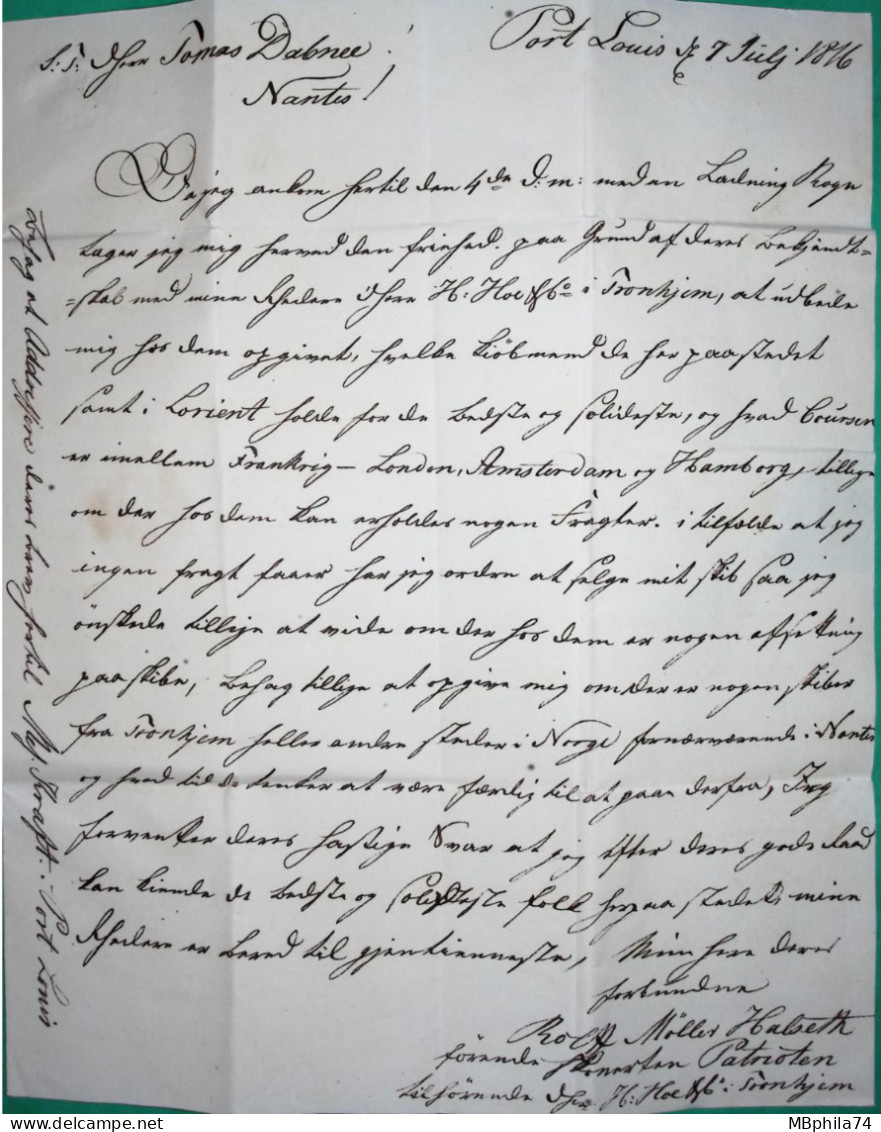 S: T: Hherr Tomas Dabnee!
Port Louis d 7 Julj 1816
Nantes!
Da jeg ankom hertil den 4de d: m: med en Ladning Rogn
tager jeg mig herved den friehed. paa Grund af deres bekjendt=
=skab med mine Rhedere Hherr H: Hoe & Co i Tronhjem, at udbede
mig hos dem opgivet, hvilke kiöbmend de her paa stedet
samt i Lorient holde for de bedste og solideste, og hvad Coursen
er imellem Frankrig - London, Amsterdam og Hamborg, tillige
om der hos dem kan erholdes nogen Fragter. i tilfælde at jeg
ingen fragt faaer har jeg ordre at selge mit skib saa jeg
önskede tillige at vide om der hos dem er nogen afsettning
paa skibe, behag tillige at opgive mig om der er nogen skibe
fra Tronhjem heller andre steder i Norge fornærværende i Nantes
og hvad tid de tenker at være færdig til at gaae derfra, Jeg
forventter deres hastige Svar at jeg efter deres gode Raad
kan kiende de bedste og solideste folk her paa stedet, mine
Rhedere er bered til gjentienneste, Min herr deres
forbundne
Rolff Möller Halseth
förende skonerten Patrioten
tilhörende Hherr H: Hoe & Co i Tronhjem
behag at Addressere deres brev hertil Mr. Kraft. Port Louis
MBphila74